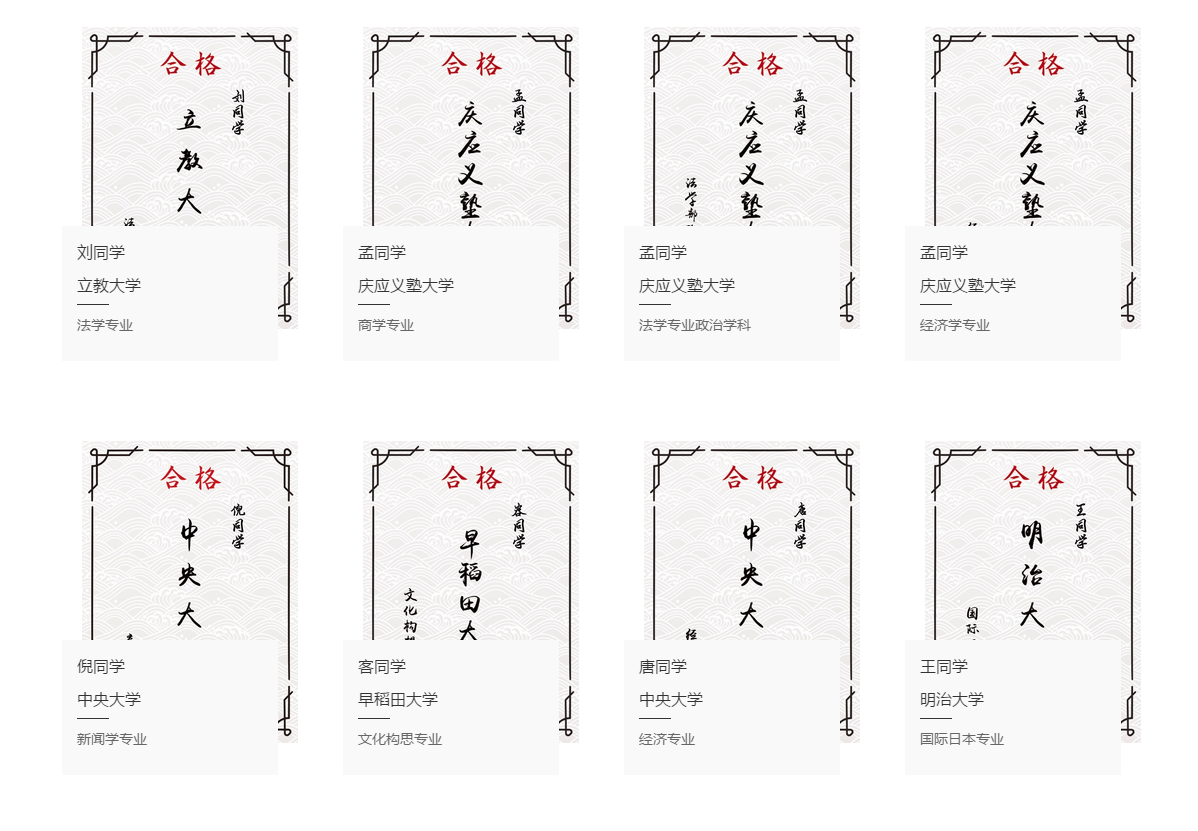 合格
刘同学
立教大
法
刘同学
立教大学
法学专业
合格
孟同学
庆应义塾
孟同学
庆应义塾大学
商学专业
合格
孟同学
庆应义塾
法学部
孟同学
庆应义塾大学
法学专业政治学科
合格
孟同学
庆应义塾
孟同学
庆应义塾大学
经济学专业
合格
倪同学
中央大
倪同学
中央大学
新闻学专业
合格
客同学
早稻田大
文化构
客同学
早稻田大学
文化构思专业
合格
唐同学
中央大
唐同学
中央大学
经济专业
合格
王同学
明治大
国际
王同学
明治大学
国际日本专业